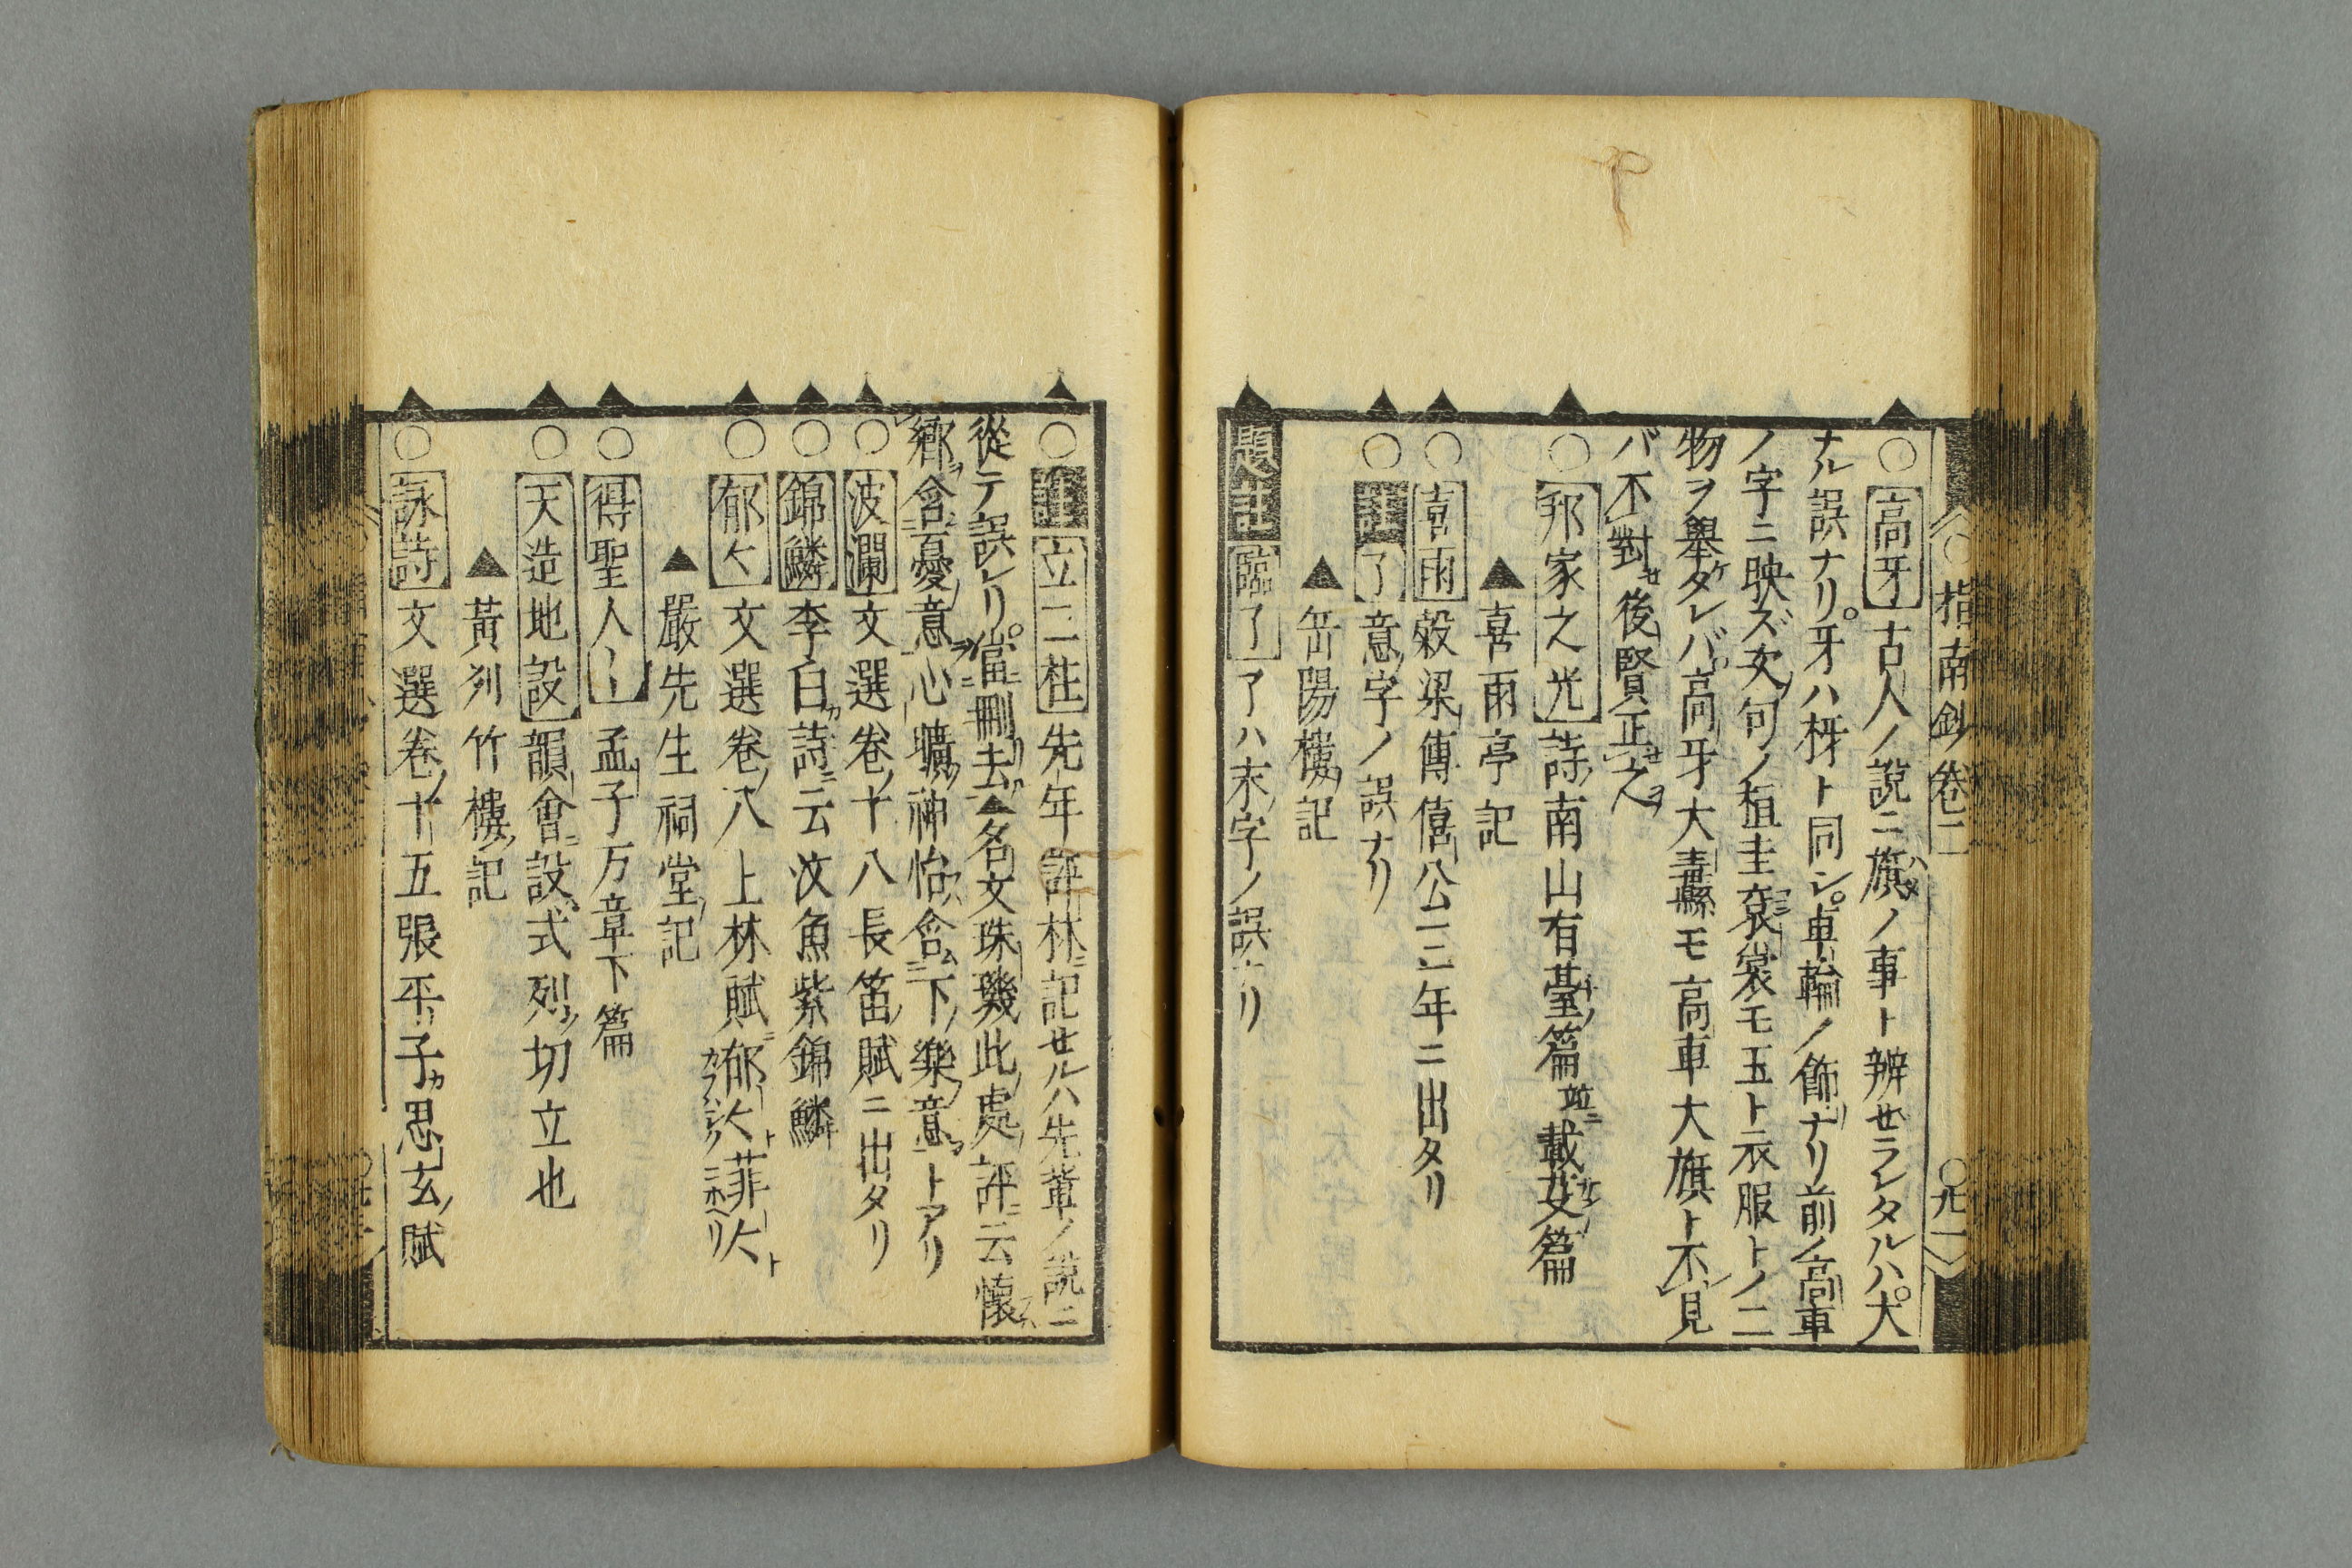 指南鈔卷二 〇九一
〇高牙 古人ノ説ニ旗ノ事ト辨セラレタルハ大
ナル誤ナリ。牙ハ枒ト同シ。車輪ノ飾ナリ前ノ高車
ノ字ニ映ズ文句ノ桓圭袞裳モ玉ト衣服トノ二
物ヲ舉タレバ高牙大纛モ高車大旗ト不見
バ不對後賢正之
〇邦家之光 詩南山有臺篇並ニ載芟篇
▲喜雨亭記
〇喜雨 穀梁傳僖公三年ニ出タリ
〇註 了 意字ノ誤ナリ
▲岳陽樓記
題註 臨了 了ハ末字ノ誤ナリ
〇註 立二柱 先年評林ニ記セルハ先輩ノ説ニ
從テ誤レリ。當删去▲名文珠璣此處評云懷
鄉含憂意心曠神怡含下樂意トアリ
〇波瀾 文選卷十八長笛賦ニ出タリ
〇錦鱗 李白詩云汶魚紫錦鱗
〇郁々 文選卷八上林賦郁々菲々
▲嚴先生祠堂記
〇得聖人 孟子万章下篇
〇天造地設 韻會設式列切立也
▲黃州竹樓記
〇詠詩 文選卷十五張平子思玄賦